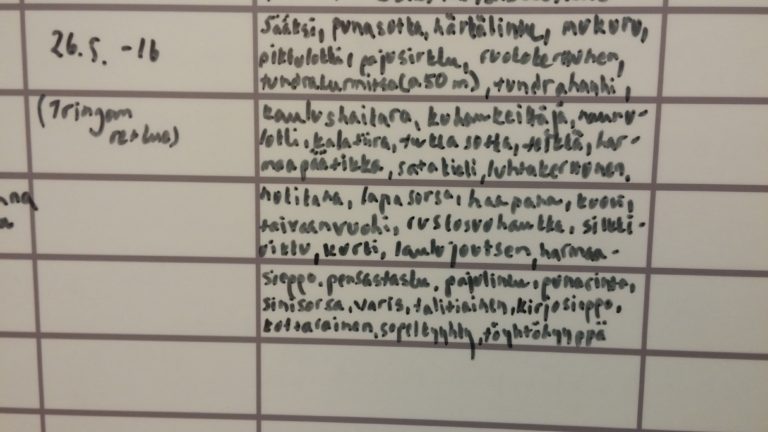 26.5. -16
(Tringan
retkue)
Sääksi, punasotka, härkälintu, mukuru,
pikkulokki, pajusirkku, ruokokerttunen,
tundrakurmitsa (n. 50 m), tundrahanhi,
kaulushaikara, ruskosuohaukka, nauru-
lokki, kalatiira, tukkasotka, telkkä, har-
maapäätikka, satakieli, luhtakerttunen,
nokikana, lapasorsa, haapana, kuovi,
taivaanvuohi, ruskosuohaukka, silkki-
uikku, kurki, laulujoutsen, harmaa-
sieppo, pensastasku, pajulintu, punarinta,
sinisorsa, varis, talitiainen, kirjosieppo,
kottarainen, sepelkyyhky, töyhtöhyyppä